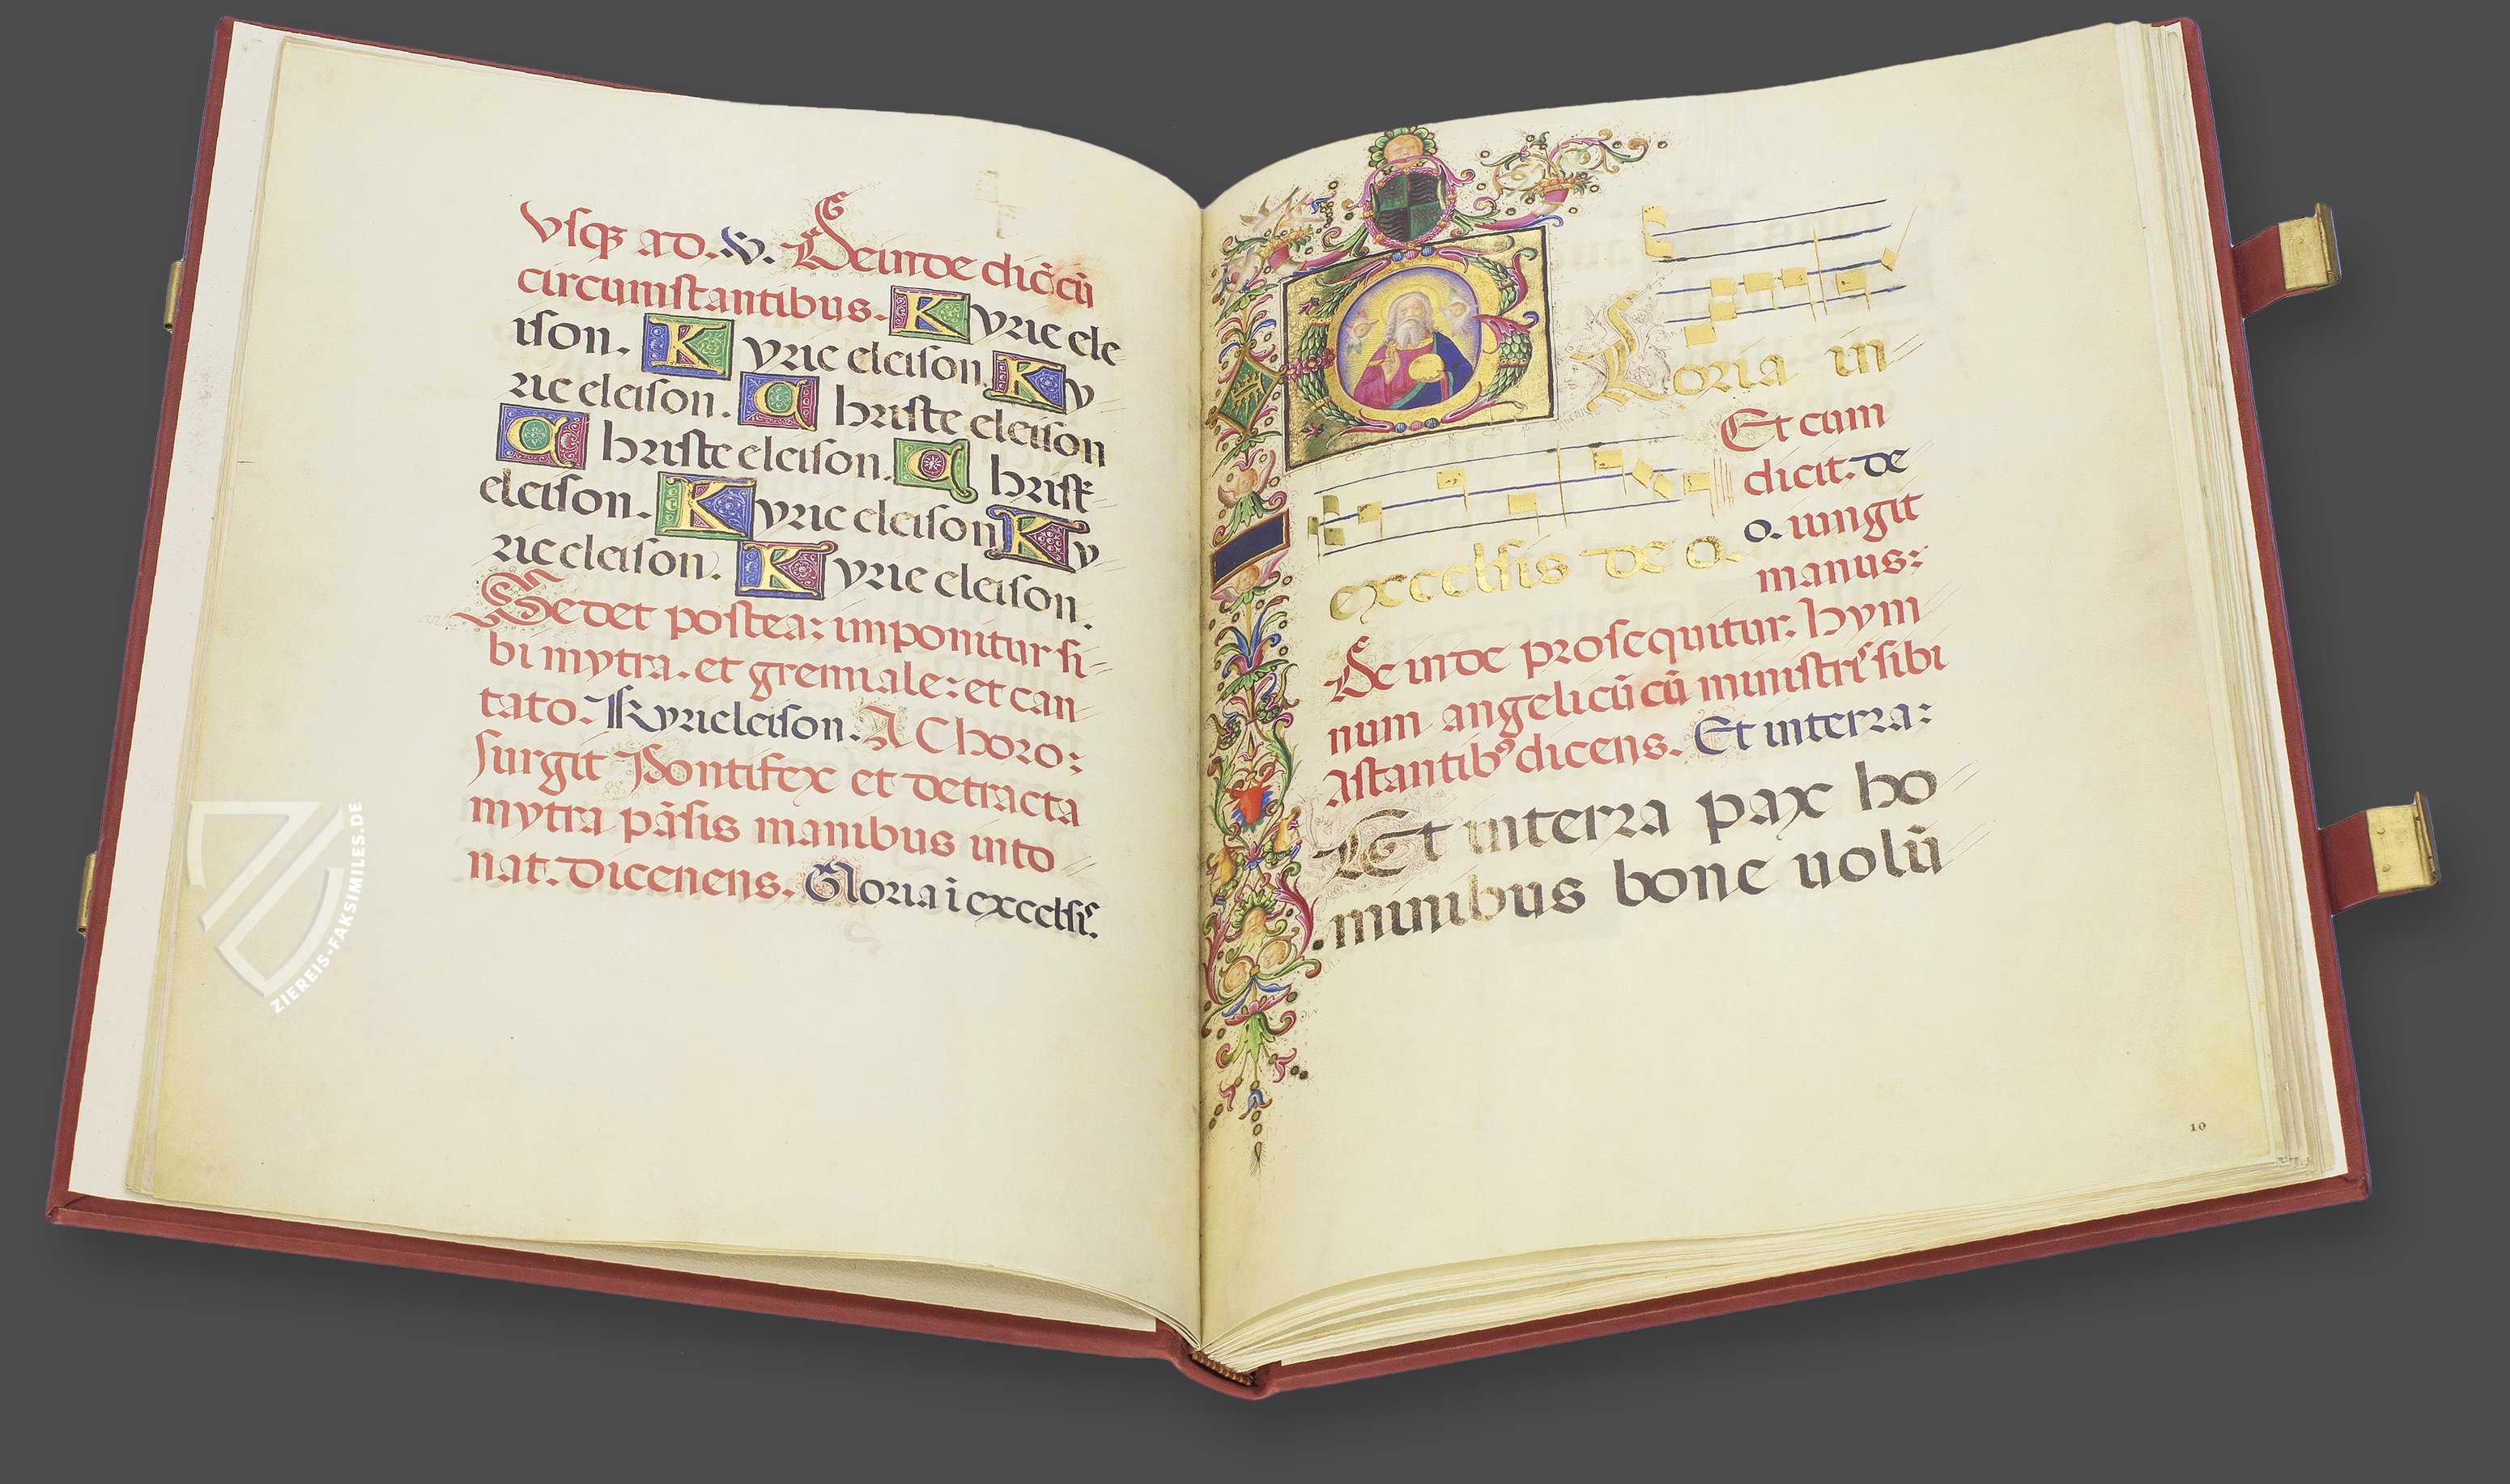 Vsqȝ ad. V. Deinde dic̄ cū
circumstantibus. Kyrie ele
ison. Kyrie eleison Ky
rie eleison. Christe eleison
Christe eleison. Christe
eleison. Kyrie eleison Ky
rie eleison. Kyrie eleison.
Sedet postea: imponitur si-
bi mytra. et gremiale: et can
tato. Kyrieleison. A Choro:
surgit Pontifex et detracta
mytra pāsis manibus into
nat. dicenens. Gloria i excelsis.
Gloria in
Et cum
dicit. de
o. iungit
manus:
excelsis de o.
Deinde prosequitur. hym
num angelicū cū ministris sibi
Astantibꝰ dicens. Et interra:
Et interra pax ho
minibus bone uolū
10
ZIEREIS-FAKSIMILES.DE